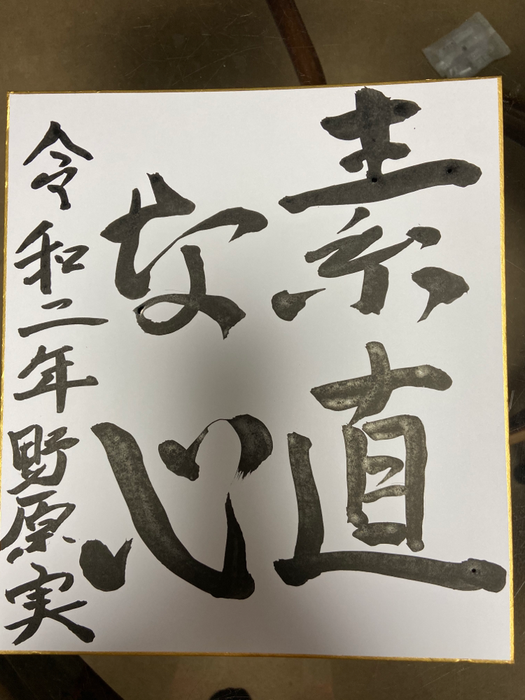 素直
な心
令和二年野原実